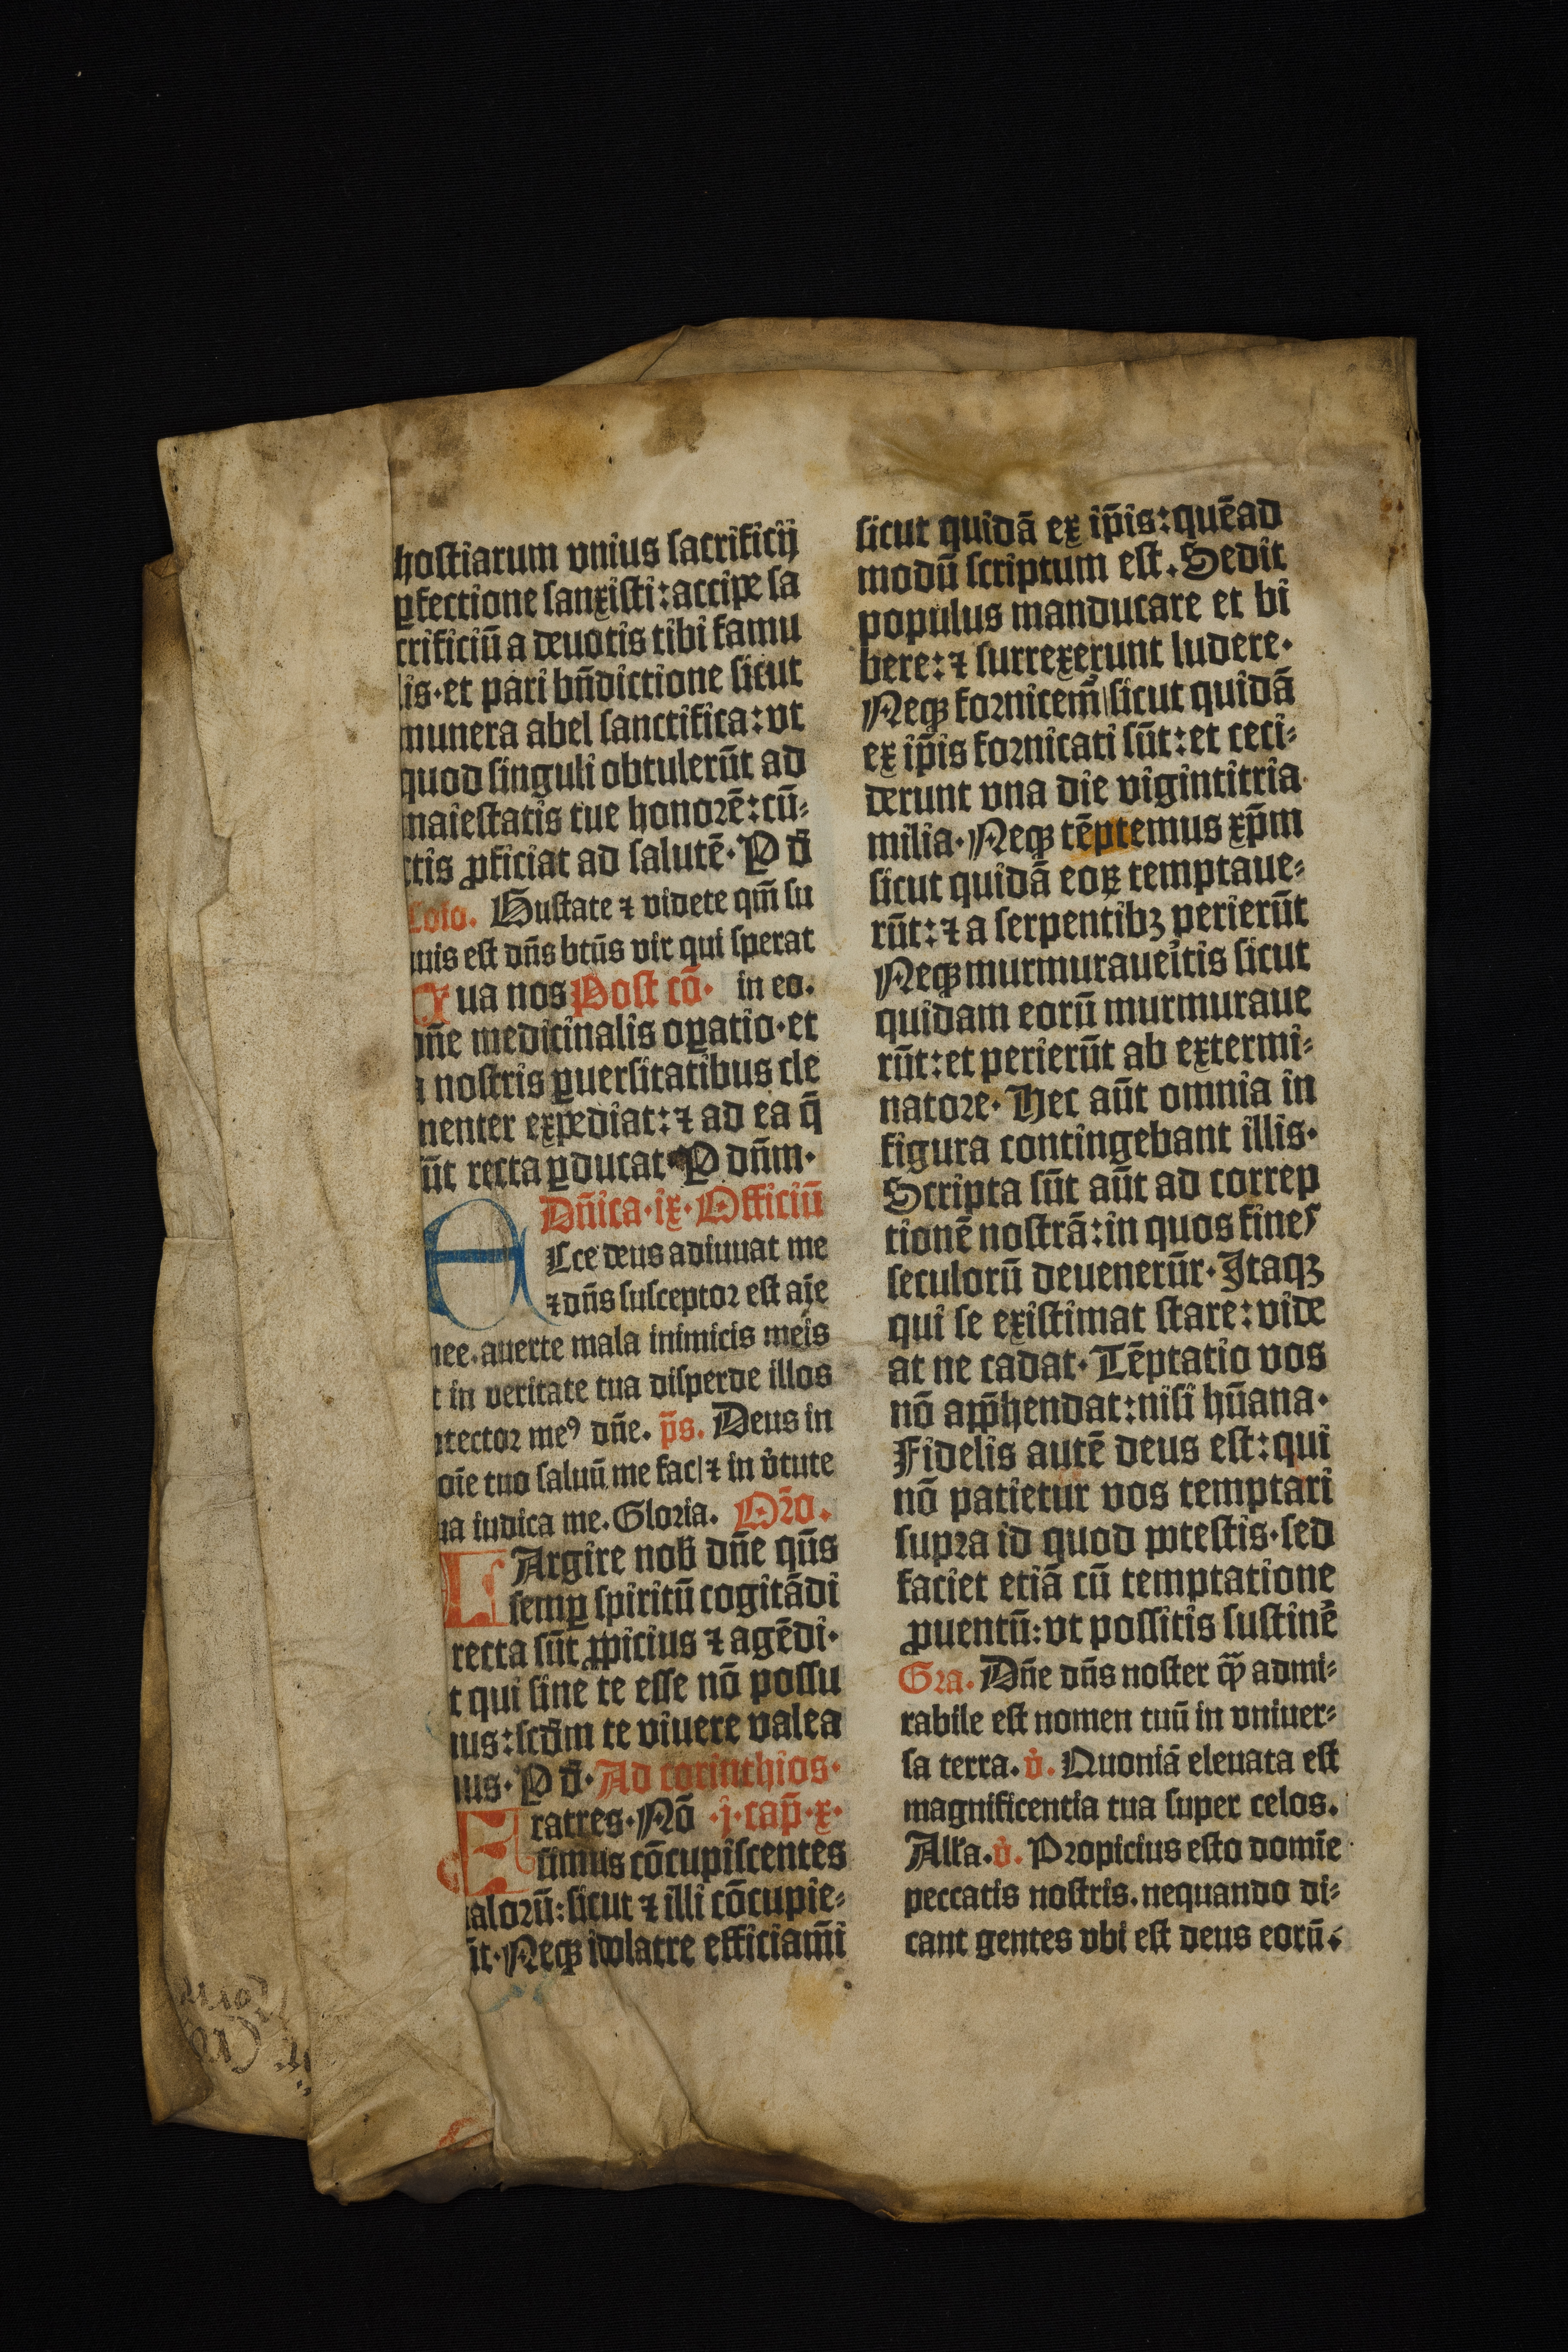 hostiarum vnius sacrificij
ꝑfectione sanxisti: accipe sa
crificiū a deuotis tibi famu
lis· et pari bn̄dictione sicut
munera abel sanctifica: vt
quod singuli obtulerūt ad
maiestatis tue honorē: cū⸗
ctis ꝓficiat ad salutē· P d̄
Cōio. Gustate ⁊ videte qm̄ su
auis est dn̄s btūs vir qui sperat
Tua nos Post cō· in eo.
dn̄e medicinalis oꝑatio· et
a nostris ꝑuersitatibus cle
menter expediat: ⁊ ad ea q̄
sūt recta ꝑducat· P dn̄m·
Dn̄ica· ix· Officiū
Ecce deus adiuuat me
⁊ dn̄s susceptor est aīe
mee. auerte mala inimicis meis
et in veritate tua disperde illos
ꝓtector meꝰ dn̄e. p̄s. Deus in
noīe tuo saluū me fac ⁊ in v̓tute
tua iudica me. Gloria. Or̄o.
LArgire nob̄ dn̄e qs̄
semꝑ spiritū cogitādi
recta sūt ꝓpicius ⁊ agēdi·
t qui sine te esse nō possu
mus: scd̄m te viuere valea
mus· P d̄· Ad corinthios·
Fratres· Nō ·j· cap̄· x·
simus cōcupiscentes
malorū: sicut ⁊ illi cōcupie⸗
rūt· Neqꝫ idolatre efficiam̄i
sicut quidā ex ip̄is: quēad
modū scriptum est. Sedit
populus manducare et bi
bere: ⁊ surrexerunt ludere·
Neqꝫ fornicem̄ sicut quidā
ex ip̄is fornicati sūt: et ceci⸗
derunt vna die vigintitria
milia· Neqꝫ tēptemus xp̄m
sicut quidā eoꝝ temptaue⸗
rūt: ⁊ a serpentibꝫ perierūt
Neqꝫ murmuraueítis sicut
quidam eorū murmuraue
rūt: et perierūt ab extermi⸗
natore· Hec aūt omnia in
figura contingebant illis·
Scripta sūt aūt ad correp
tionē nostrā: in quos fines
seculorū deuenerūr· Itaqꝫ
qui se existimat stare: vide
at ne cadat· Tēptatio vos
nō app̄hendat: nisi hūana·
Fidelis autē deus est: qui
nō patietur vos temptari
supra id quod potestis· sed
faciet etiā cū temptatione
ꝓuentū: vt possitis sustinē
Gra. Dn̄e dn̄s noster q̄ꝫ admi⸗
rabile est nomen tuū in vniuer⸗
sa terra. v̓. Quoniā eleuata est
magnificentia tua super celos.
Allʼa. v̓. Propicius esto domīe
peccatis nostris. nequando di⸗
cant gentes vbi est deus eorū.